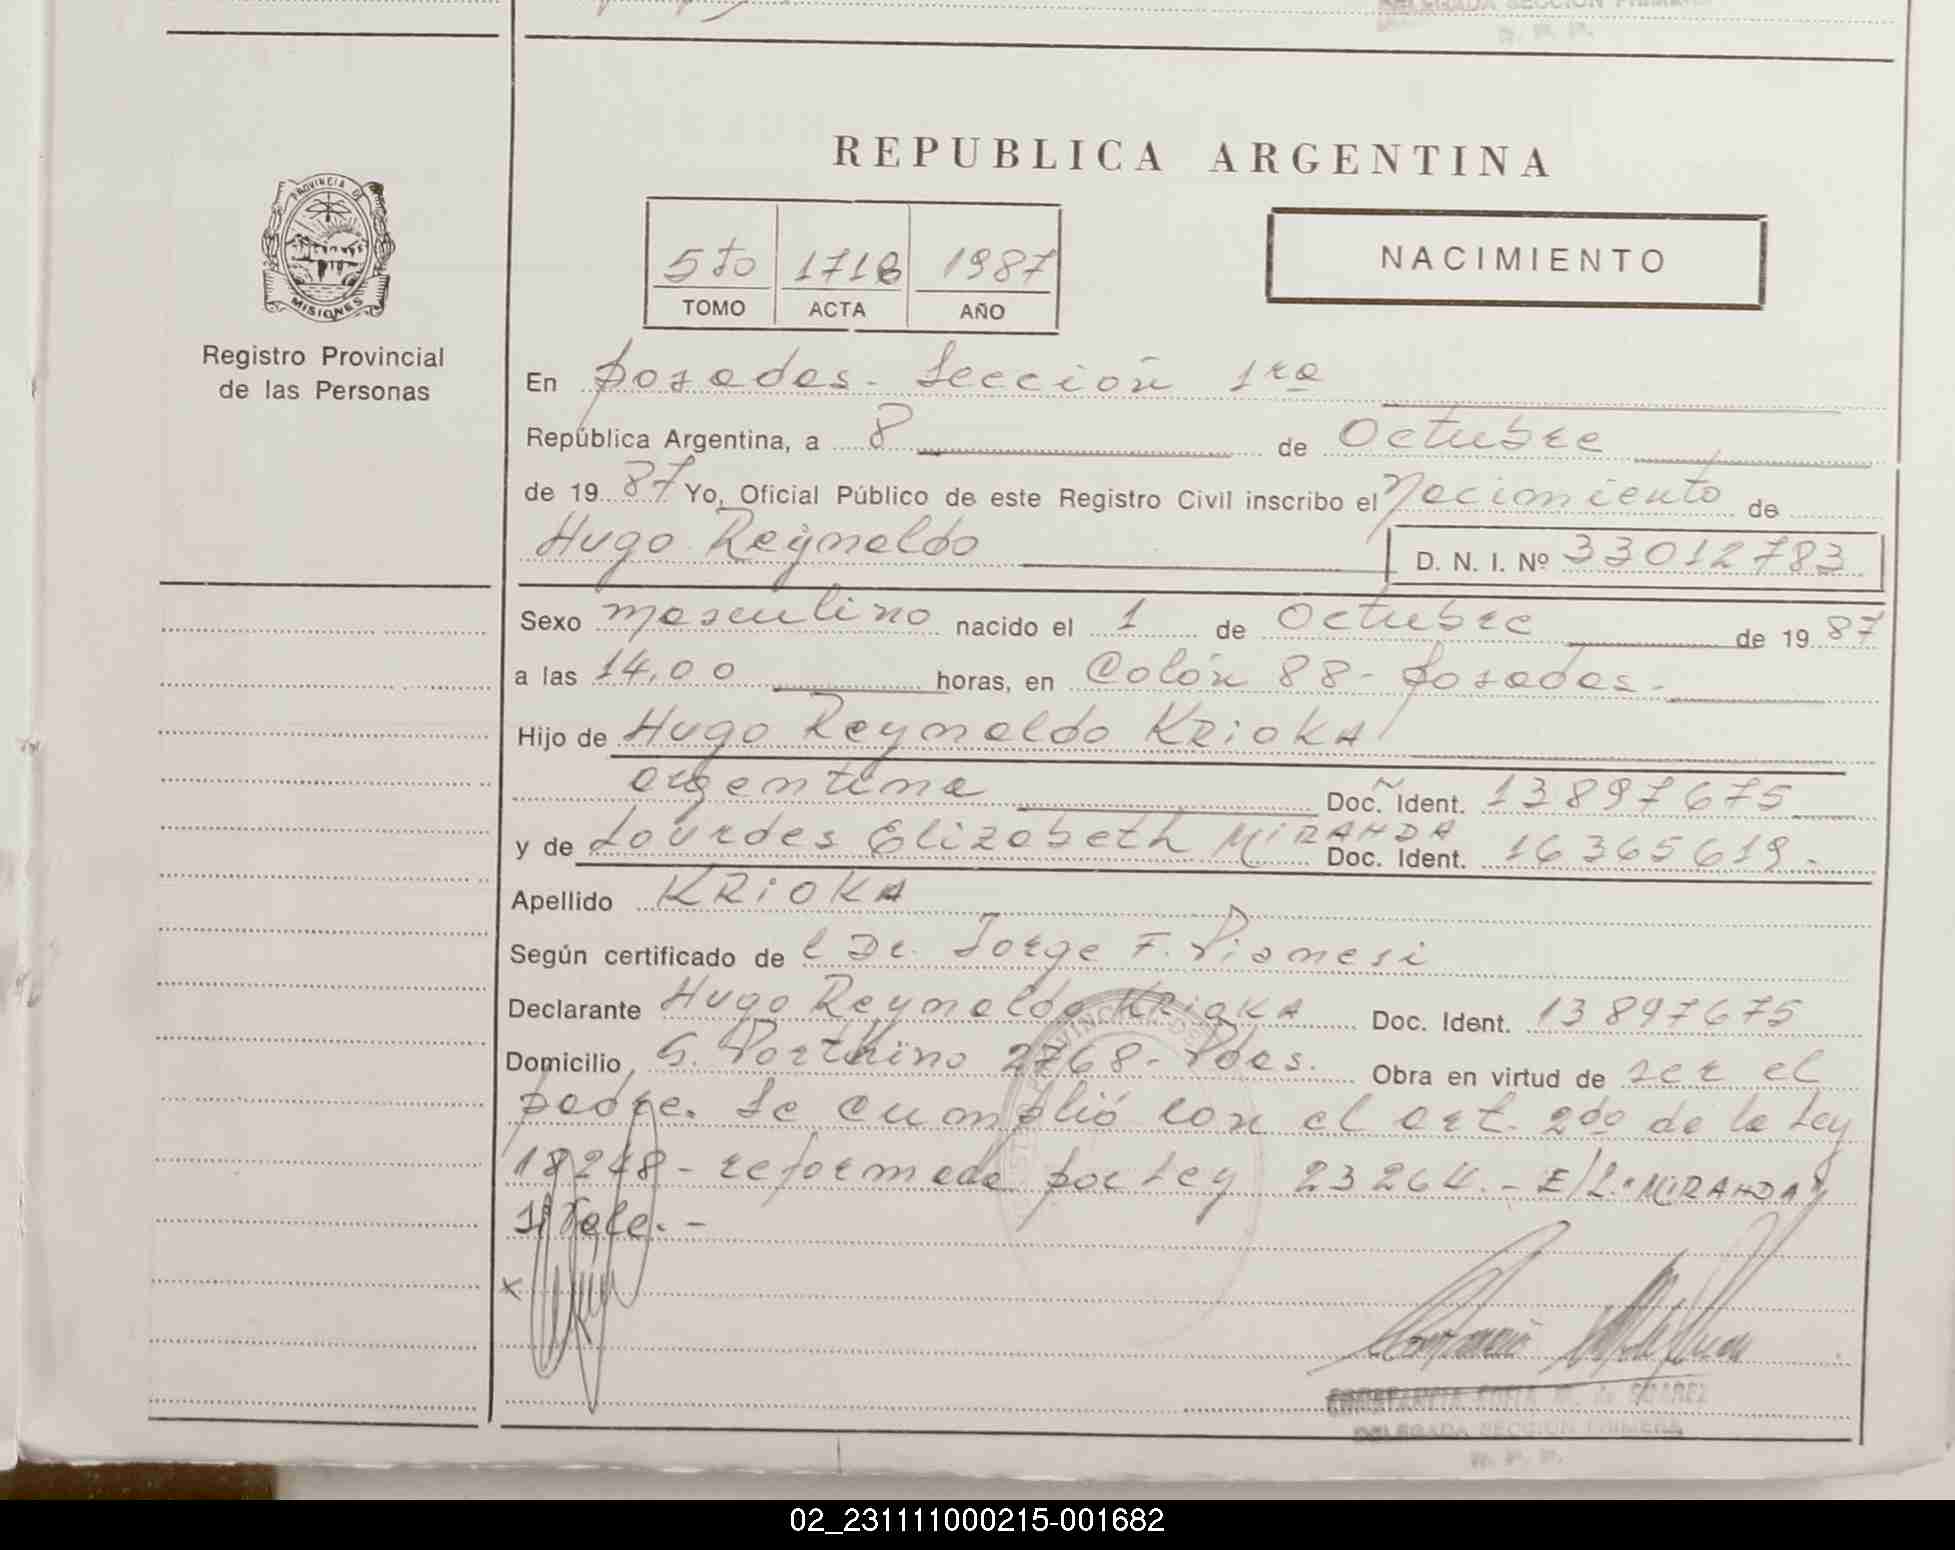 DELEGADA SECCION PRIMERA
R. P. P.
REPUBLICA ARGENTINA
PROVINCIA DE
MISIONES
Registro Provincial
de las Personas
5to 1716 1987
TOMO ACTA AÑO
NACIMIENTO
En Posadas - Sección 1ra
República Argentina, a 8 de Octubre
de 1987 Yo, Oficial Público de este Registro Civil inscribo el Nacimiento de
Hugo Reynaldo D. N. I. Nº 33012783
Sexo masculino nacido el 1 de Octubre de 1987
a las 14,00 horas, en Colón 88 - Posadas -
Hijo de Hugo Reynaldo KRIOKA
argentina Doc. Ident. 13897675
y de Lourdes Elizabeth MIRANDA Doc. Ident. 16365619 -
Apellido KRIOKA
Según certificado de l Dr. Jorge F. Pianesi
Declarante Hugo Reynaldo KRIOKA Doc. Ident. 13897675
Domicilio S. Porthino 2768 - Pdas. Obra en virtud de ser el
padre. Se cumplió con el art. 2do de la Ley
18248 - reformada por Ley 23264. - E/L: "MIRANDA"
Vale. -
x
CONSTANCIA SOFIA M. de SUAREZ
DELEGADA SECCION PRIMERA
R. P. P.
02_231111000215-001682